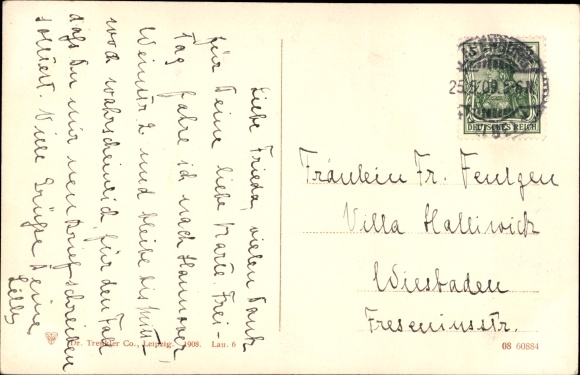 Liebe Frieda, vielen Dank
für Deine liebe Karte. Frei-
tag fahre ich nach Hannover
Weinstr 2 und bleibe bis Mitt-
woch wahrscheinlich, für den Fall
dass Du mir nen Brief schreiben
solltest. Viele Grüße Deine
Lilly
25.5.09.5-6N
DEUTSCHES REICH
Fräulein Fr. Fentzen
Villa Halliwick
Wiesbaden
Freseniusstr.
Dr. Trenkler Co., Leipzig. 1908. Lau. 6
08 60884